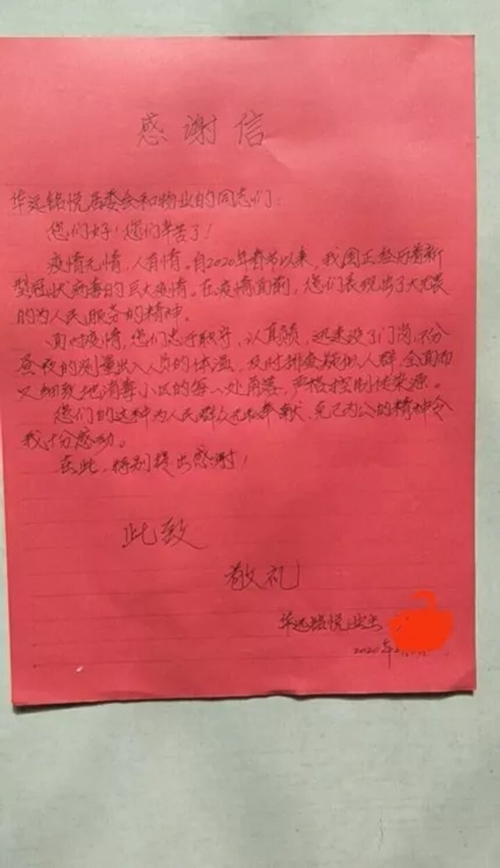 感谢信
华远铭悦居委会和物业的同志们:
您们好!您们辛苦了!
疫情无情,人有情。自2020年春节以来,我国正经历着新
型冠状病毒的巨大疫情。在疫情面前,您们表现出了大无畏
的为人民服务的精神。
面对疫情,您们忠于职守,认真负责,迅速设了门岗,不分
昼夜的测量出入人员的体温,及时排查疑似人群,全面而
又细致地消毒小区的每一处角落,严格控制传染源。
您们的这种为人民群众无私奉献,克己为公的精神令
我十分感动。
在此,特别提出感谢!
此致
敬礼
华远铭悦业主
2020年2